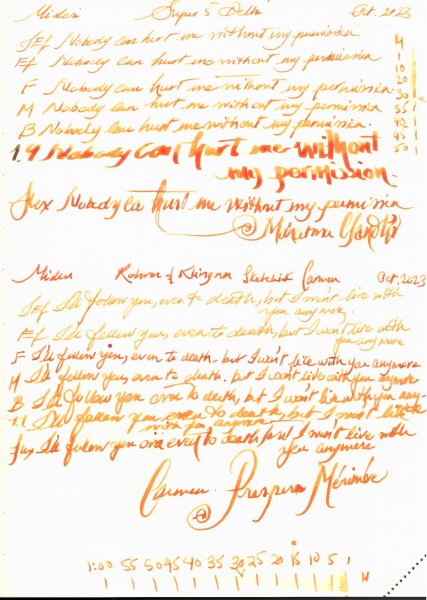 Midori Super 5 Delhi Oct. 2023
JEf Nobody can hurt me without my permission
Ef Nobody can hurt me without my permission
F Nobody can hurt me without my permission
M Nobody can hurt me without my permission
B Nobody can hurt me without my permission
1.9 Nobody can hurt me without
my permission.
Flex Nobody can hurt me without my permission
@ Mahatma Gandhi
M
1
10
20
30
55
40
45
50
Midori Rohrer & Klingner Sketchink Carmen Oct, 2023
JEf I'll follow you, even to death, but I won't live with
you anymore.
Ef I'll follow you, even to death, but I won't live with
you anymore
F I'll follow you, even to death. but I won't live with you anymore
M I'll follow you, even to death. but I won't live with you anymore
B I'll follow you even to death, but I won't live with you any-
1.1 I'll follow you even to death, but I won't live
with you anymore
you even to death but I won't live with
you anymore
Carmen. Prospero Mérimée
@
1:00 55 50 45 40 35 30 25 20 15 10 5 1
M